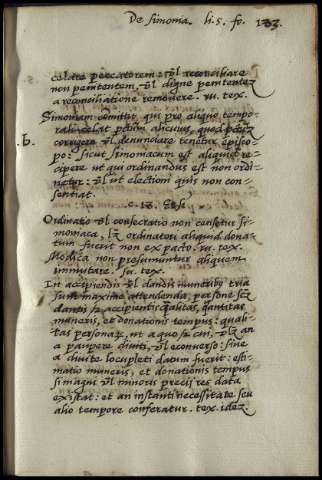 De simonia. li. 5. fo. 133.
celare peccatorem: vl' reconciliare
non penitentem, vl' digne penitentez
a reconciliatione removere. su. tex.
Simoniam comittit, qui pro aliquo tempo-
rali celat petum alicuius, quod
b. corrigere vl' denunciare tenetur episco-
po: sicut simoniacum est aliquid re-
cipere ut qui ordinandus est non ordi-
netur: vl' ut electioni quis non con-
sentiat.
c. 18.
Ordinatio vl' consecratio non censetur si-
moniaca, lz ordinatori aliquid dona-
tum fuerit non ex pacto. su. tex.
Modica non presumuntur aliquem
immutare. su. tex.
In accipiendis vl' dandis muneribus tria
sunt maxime attendenda, persone scz
dantis & accipientis qualitas, quantitas
muneris, et donationis tempus: quali-
tas personarum, ut a quo & cui, vz an
a paupere diuiti, vl' econuerso: siue
a diuite locupleti datum fuerit: esti-
matio muneris, et donationis tempus
si magni vl' minoris precii res data
existat: et an instanti necessitate seu
alio tempore conferatur. tex. idez.